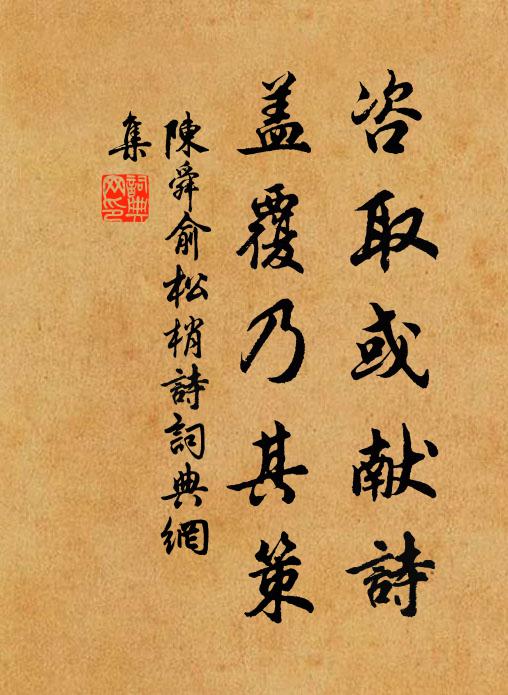 咨取或献詩
盖覆乃其策
陳舜俞松梢詩詞典網
集
詞典
网印